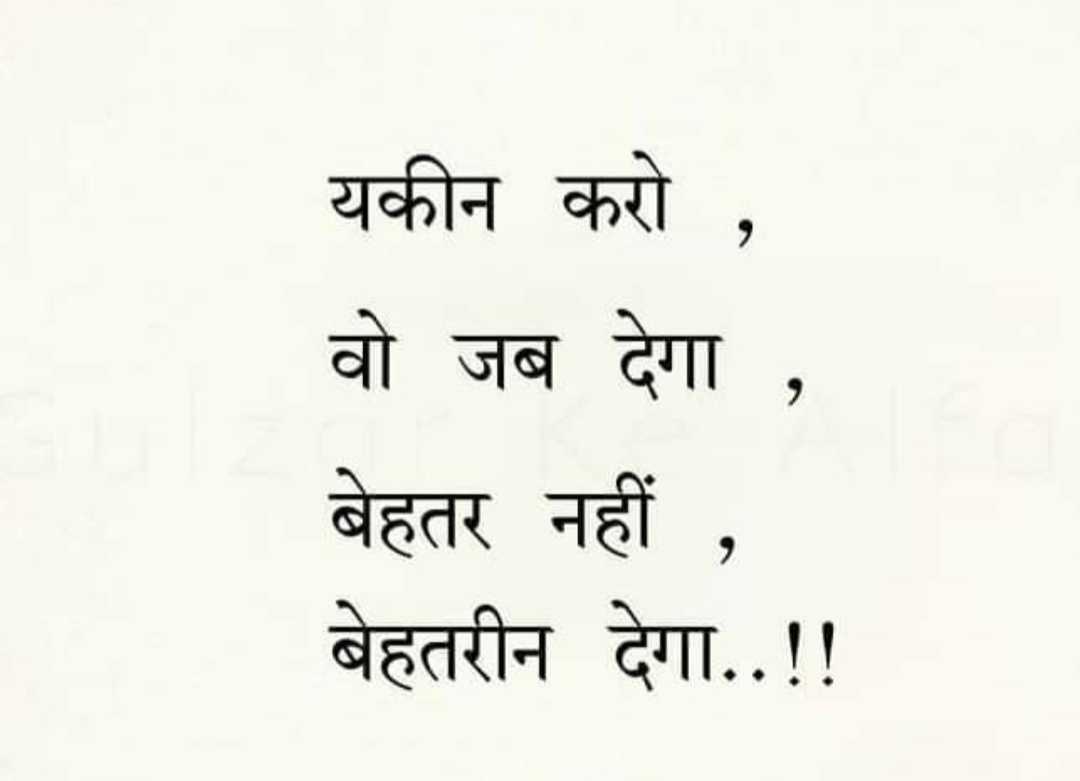 यकीन करो ,
वो जब देगा ,
बेहतर नहीं ,
बेहतरीन देगा..!!
Gulzar Ke Alfa